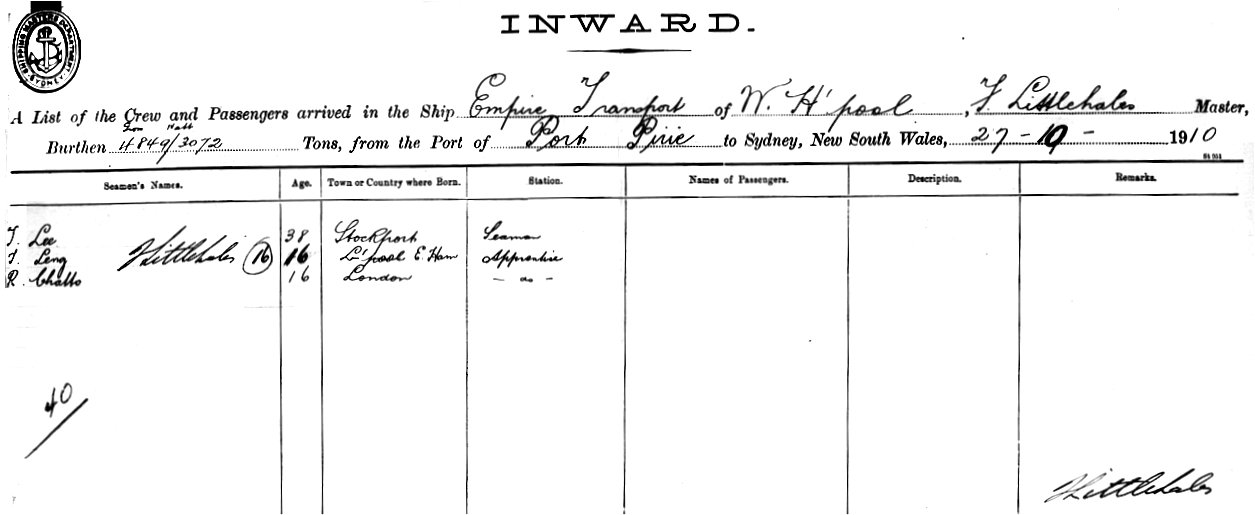 SHIPPING MASTERS DEPARTMENT SYDNEY
INWARD.
A List of the Crew and Passengers arrived in the Ship Empire Transport of W. H'pool, F. Littlehales Master,
Burthen 4849/3072 Tons, from the Port of Port Pirie to Sydney, New South Wales, 27-10-1910
Seamen's Names. Age. Town or Country where Born. Station. Names of Passengers. Description. Remarks.
T. Lee 38 Stockport Seaman
T. Leng FLittlehales 16 16 L'pool E. Ham Apprentice
R. Chatto 16 London - do -
40/
FLittlehales